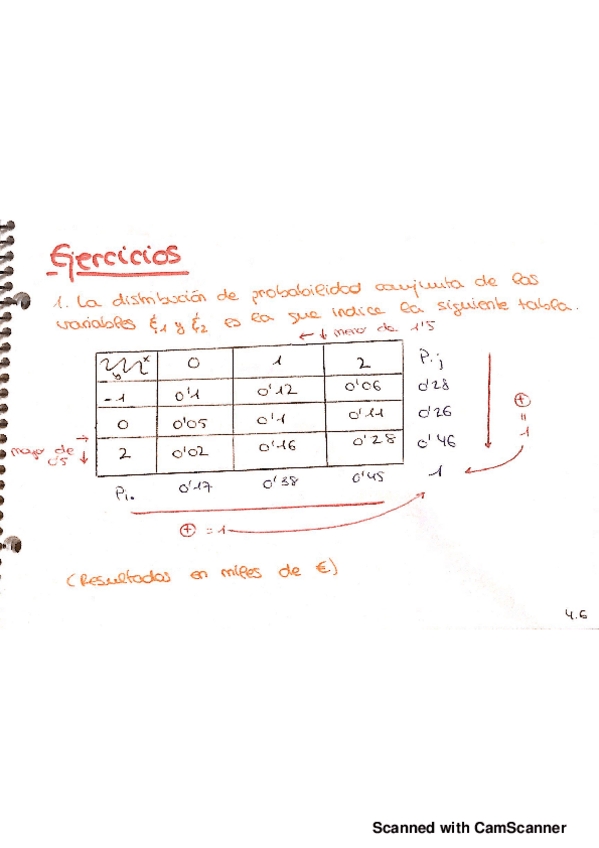 Ejercicios
1. La distribución de probabilidad conjunta de las
variables ξ1 y ξ2 es la que indice la siguiente tabla.
← ↓ menor de 1'5
x 0 1 2 P.j
-1 0'1 0'12 0'06 0'28
0 0'05 0'1 0'11 0'26
2 0'02 0'16 0'28 0'46
mayor de → 0'5 ↓
Pi. 0'17 0'38 0'45 1
⊕ = 1
⊕ = 1
(Resultados en miles de €)
4.6
Scanned with CamScanner